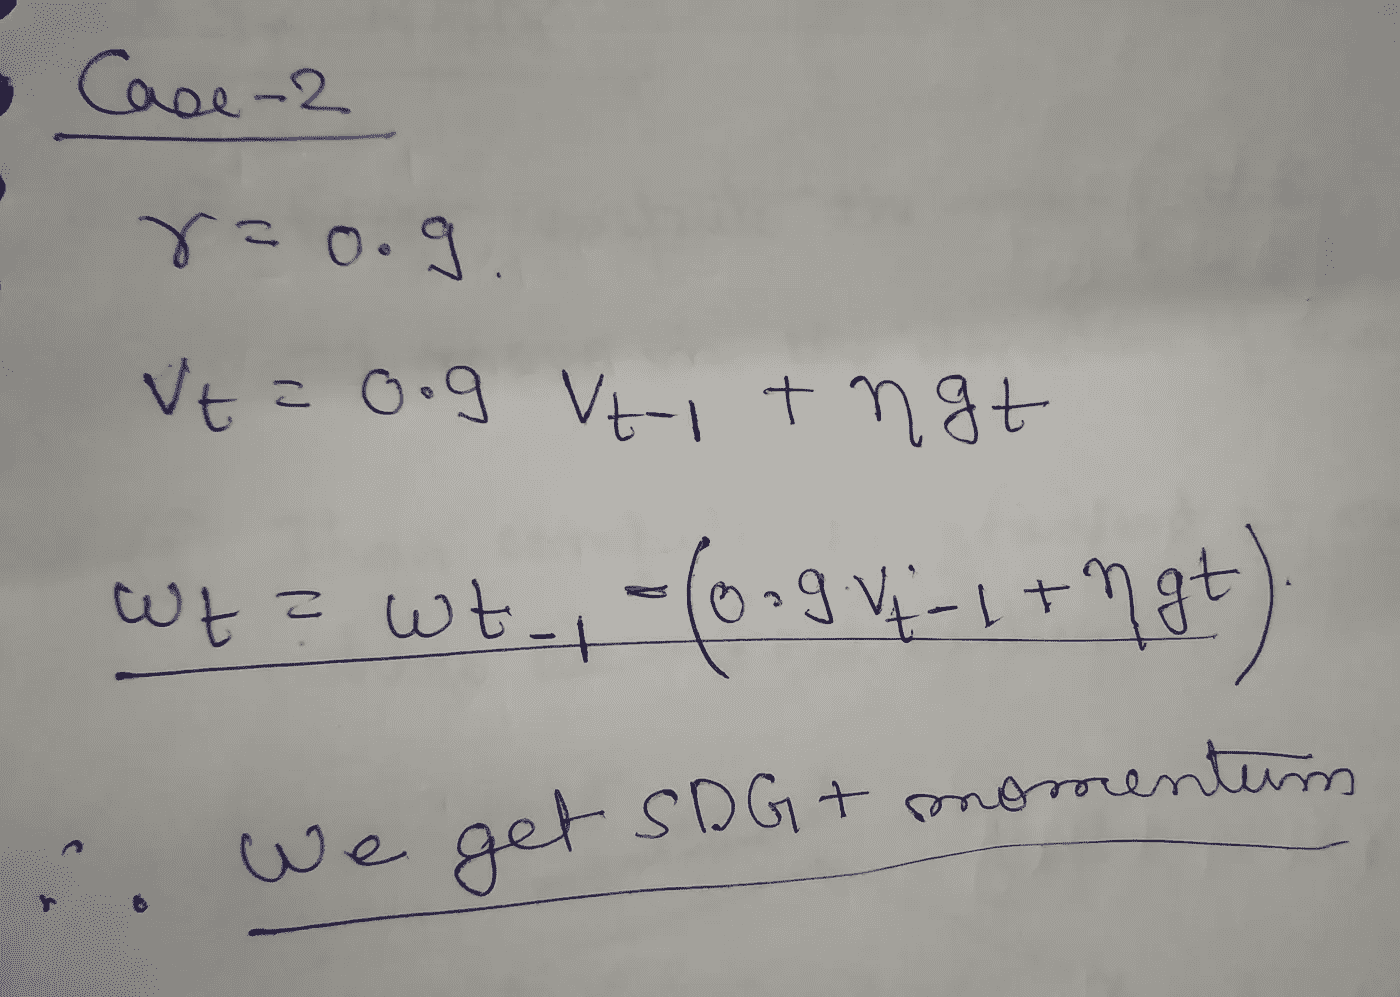 Case-2
γ = 0.9.
Vt = 0.9 Vt-1 + ηgt
ωt = ωt-1 - (0.9 Vt-1 + ηgt).
∴ We get SDG + momentum